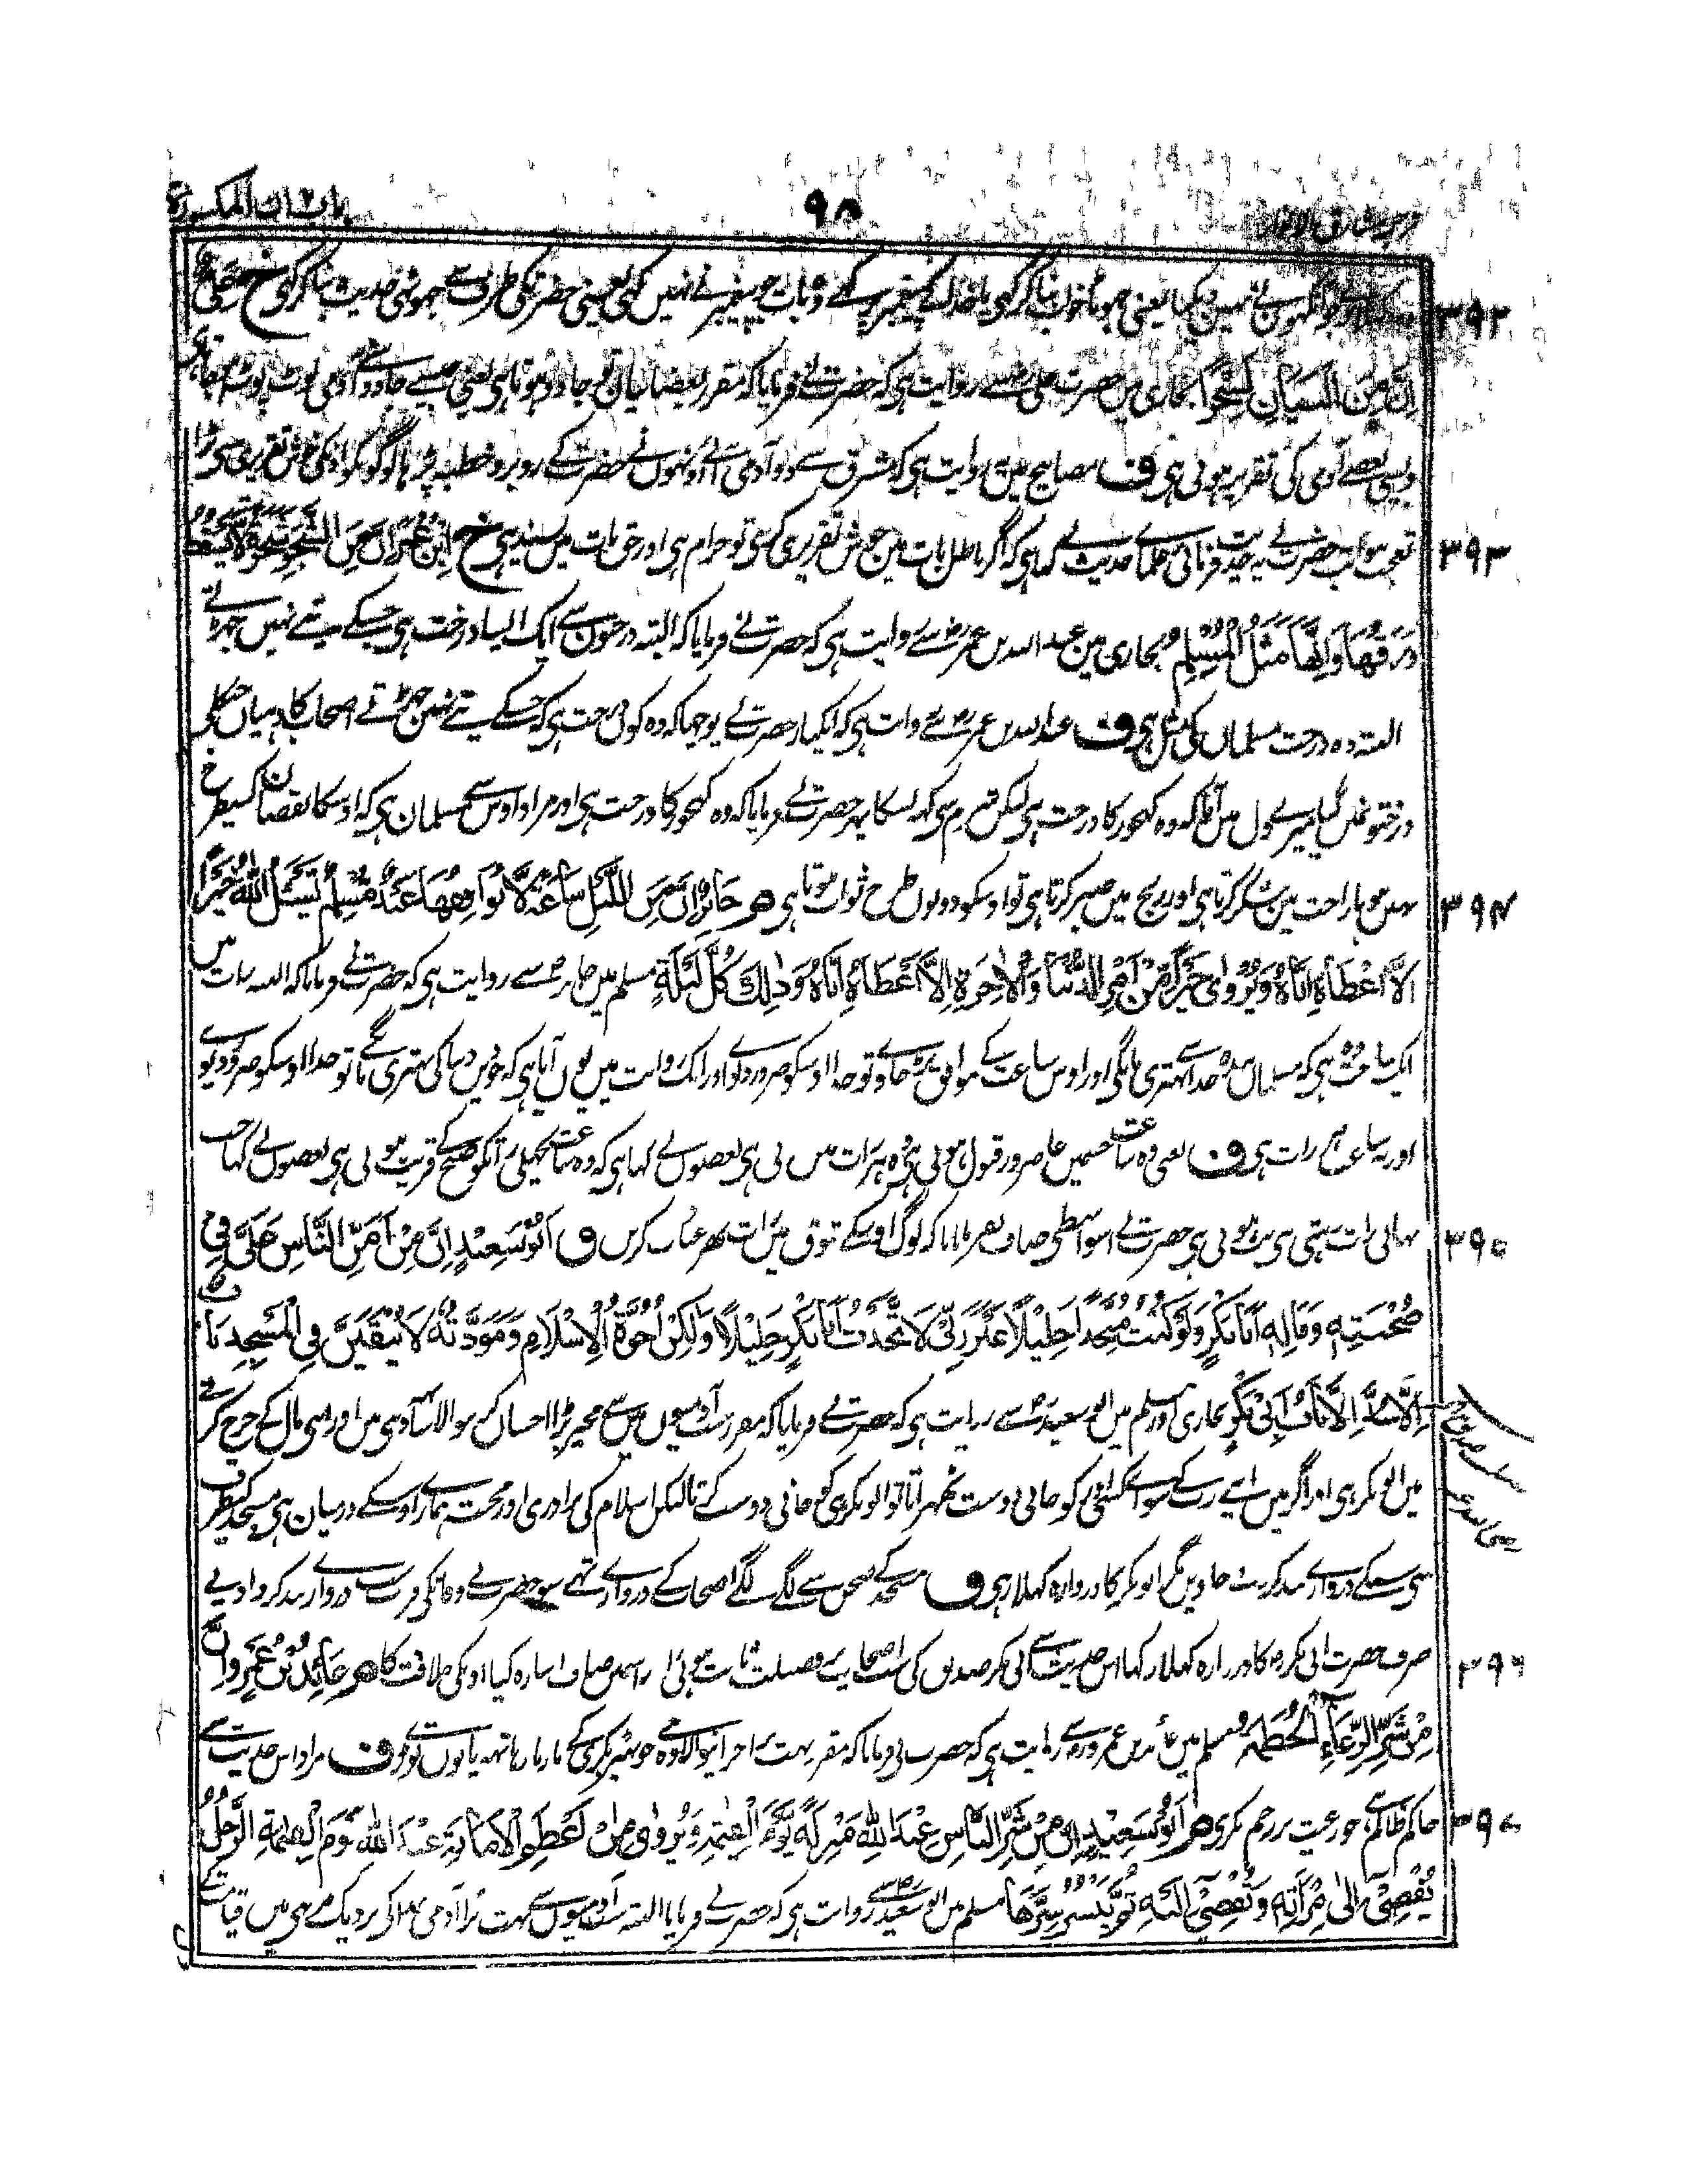 باب ان المکسورة
۹۸
۳۹۲
نہیں دیکھا یعنی جھوٹا خواب بنا کر کہی یا خدا کے پیغمبر پر کہے وہ بات جو پیغمبر نے نہیں کہی یعنی حضرت کی طرف سے جھوٹی حدیث بنا کر کہی خ
اِنَّ مِنَ الْبَيَانِ لَسِحْرًا بخاری میں حضرت سے روایت ہی کہ حضرت نے فرمایا کہ مقرر بعضا بیان جادو ہوتا ہی یعنی جیسے جادو سے آدمی لوٹ پوٹ ہو جاتا ہی
ویسی بعضے آدمی کی تقریر ہوتی ہی ف مصابیح میں روایت ہی کہ مشرق سے دو آدمی آئے اونہوں نے حضرت کے روبرو خطبہ پڑہا لوگوں کو اونکی خوش تقریری سی بڑا
۳۹۳
تعجب ہوا تب حضرت نے یہ حدیث فرمائی علمای حدیث نے کہا ہی کہ اگر باطل بات میں خوش تقریری کری تو حرام ہی اور حق بات میں پسند ہی خ ابْنُ عُمَرَ اِنَّ مِنَ الشَّجَرِ شَجَرَةً لَا يَسْقُطُ
وَرَقُهَا وَاِنَّهَا مَثَلُ الْمُسْلِمِ بخاری میں عبد اللہ بن عمر سے روایت ہی کہ حضرت نے فرمایا کہ البتہ درختوں سے ایک ایسا درخت ہی جسکے پتے نہیں جھڑتے
البتہ وہ درخت مسلمان کی مثل ہی ف عبد اللہ بن عمر سے روایت ہی کہ ایکبار حضرت نے پوچھا کہ وہ کون درخت ہی کہ جسکے پتے نہیں جھڑتے اصحاب کا دہیان جنگلی
درختوں میں گیا میرے دل میں آیا کہ وہ کھجور کا درخت ہی لیکن شرم سی کہہ نسکا پھر حضرت نے فرمایا کہ وہ کھجور کا درخت ہی اور مراد اوس سے مسلمان ہی کہ اوسکا نقصان کسیطرح
۳۹۴
نہیں ہوتا راحت میں شکر کرتا ہی اور رنج میں صبر کرتا ہی تو اوسکو دونوں طرح ثواب ہوتا ہی م جَابِرٌ اِنَّ مِنَ اللَّيْلِ سَاعَةً لَا يُوَافِقُهَا عَبْدٌ مُسْلِمٌ يَسْئَلُ اللهَ خَيْرًا
اِلَّا اَعْطَاهُ اِيَّاهُ وَيُرْوٰى خَيْرًا مِنْ اَمْرِ الدُّنْيَا وَالْاٰخِرَةِ اِلَّا اَعْطَاهُ اِيَّاهُ وَذٰلِكَ كُلَّ لَيْلَةٍ مسلم میں جابر سے روایت ہی کہ حضرت نے فرمایا کہ البتہ رات میں
ایک ساعت ہی کہ مسلمان بندہ خدا سے بہتری مانگی اور اوس ساعت کے موافق پڑ جاوے تو خدا اوسکو ضرور دیوے اور ایک روایت میں یوں آیا ہی کہ جو دین دنیا کی بہتری مانگے گا تو خدا اوسکو ضرور دیوے
اور یہ ساعت ہر رات ہی ف یعنی وہ ساعت جسمیں دعا ضرور قبول ہوتی ہی وہ ہر رات میں ہوتی ہی بعضوں نے کہا ہی کہ وہ ساعت پچھلی رات کو صبح کے قریب ہوتی ہی بعضوں نے کہا جب
۳۹۵
تہائی رات رہتی ہی تب ہوتی ہی حضرت نے اسواسطی صاف نفرمایا تا کہ لوگ اوسکے شوق میں رات بھر عبادت کریں ق اَبُوْ سَعِيْدٍ اِنَّ مِنْ اَمَنِّ النَّاسِ عَلَيَّ فِيْ
صُحْبَتِهٖ وَمَالِهٖ اَبَا بَكْرٍ وَلَوْ كُنْتُ مُتَّخِذًا خَلِيْلًا غَيْرَ رَبِّيْ لَاتَّخَذْتُ اَبَا بَكْرٍ خَلِيْلًا وَلٰكِنْ اُخُوَّةُ الْاِسْلَامِ وَمَوَدَّتُهُ لَا يَبْقَيَنَّ فِي الْمَسْجِدِ بَابٌ
اِلَّا سُدَّ اِلَّا بَابُ اَبِيْ بَكْرٍ بخاری اور مسلم میں ابو سعید سے روایت ہی کہ حضرت نے فرمایا کہ مقرر سب آدمیوں میں سے مجھپر بڑا احسان کرنیوالا ساتھ دینی میں اور اپنی مال کے خرچ کرنے
میں ابو بکر ہی اور اگر میں اپنے رب کے سوا کسیکو جانی دوست ٹھہراتا تو ابو بکر ہی کو جانی دوست کرتا لیکن اسلام کی برادری اور محبت ہمارے اوسکے درمیان ہی مسجد کیطرف
سی سبکے دروازے بند کردیے جاویں مگر ابو بکر کا دروازہ کھلا رہی ف مسجد کے صحن سے لگے لگے اصحاب کے دروازے تھے سو حضرت نے وفات کے قریب سب دروازے بند کروا دیے
۳۹۶
صرف حضرت ابی بکر کا دروازہ کھلا رکھا اس حدیث سے ابی بکر صدیق کی سب اصحاب پر فضیلت ثابت ہوئی اور اسمیں صاف اشارہ کیا اونکی خلافت کا م عَائِذُ بْنُ عَمْرٍو اِنَّ
مِنْ شَرِّ الرِّعَاءِ الْحُطَمَةَ مسلم میں عائذ بن عمرو سے روایت ہی کہ حضرت نے فرمایا کہ مقرر بہت برا چرانیوالا وہ جو بھیڑ بکری کے ہاتھ پانوں توڑے ف مراد اس حدیث سے
۳۹۷
حاکم ظالم ہی جو رعیت پر رحم نکری م اَبُوْ سَعِيْدٍ اِنَّ مِنْ شَرِّ النَّاسِ عِنْدَ اللهِ مَنْزِلَةً يَوْمَ الْقِيٰمَةِ وَيُرْوٰى اِنَّ مِنْ اَعْظَمِ الْاَمَانَةِ عِنْدَ اللهِ يَوْمَ الْقِيٰمَةِ الرَّجُلُ
يُفْضِيْ اِلٰى امْرَأَتِهٖ وَتُفْضِيْ اِلَيْهِ ثُمَّ يَنْشُرُ سِرَّهَا مسلم میں ابو سعید سے روایت ہی کہ حضرت نے فرمایا البتہ سب آدمیوں سے بہت برا آدمی اللہ کی نزدیک مرتبے میں قیامت کے